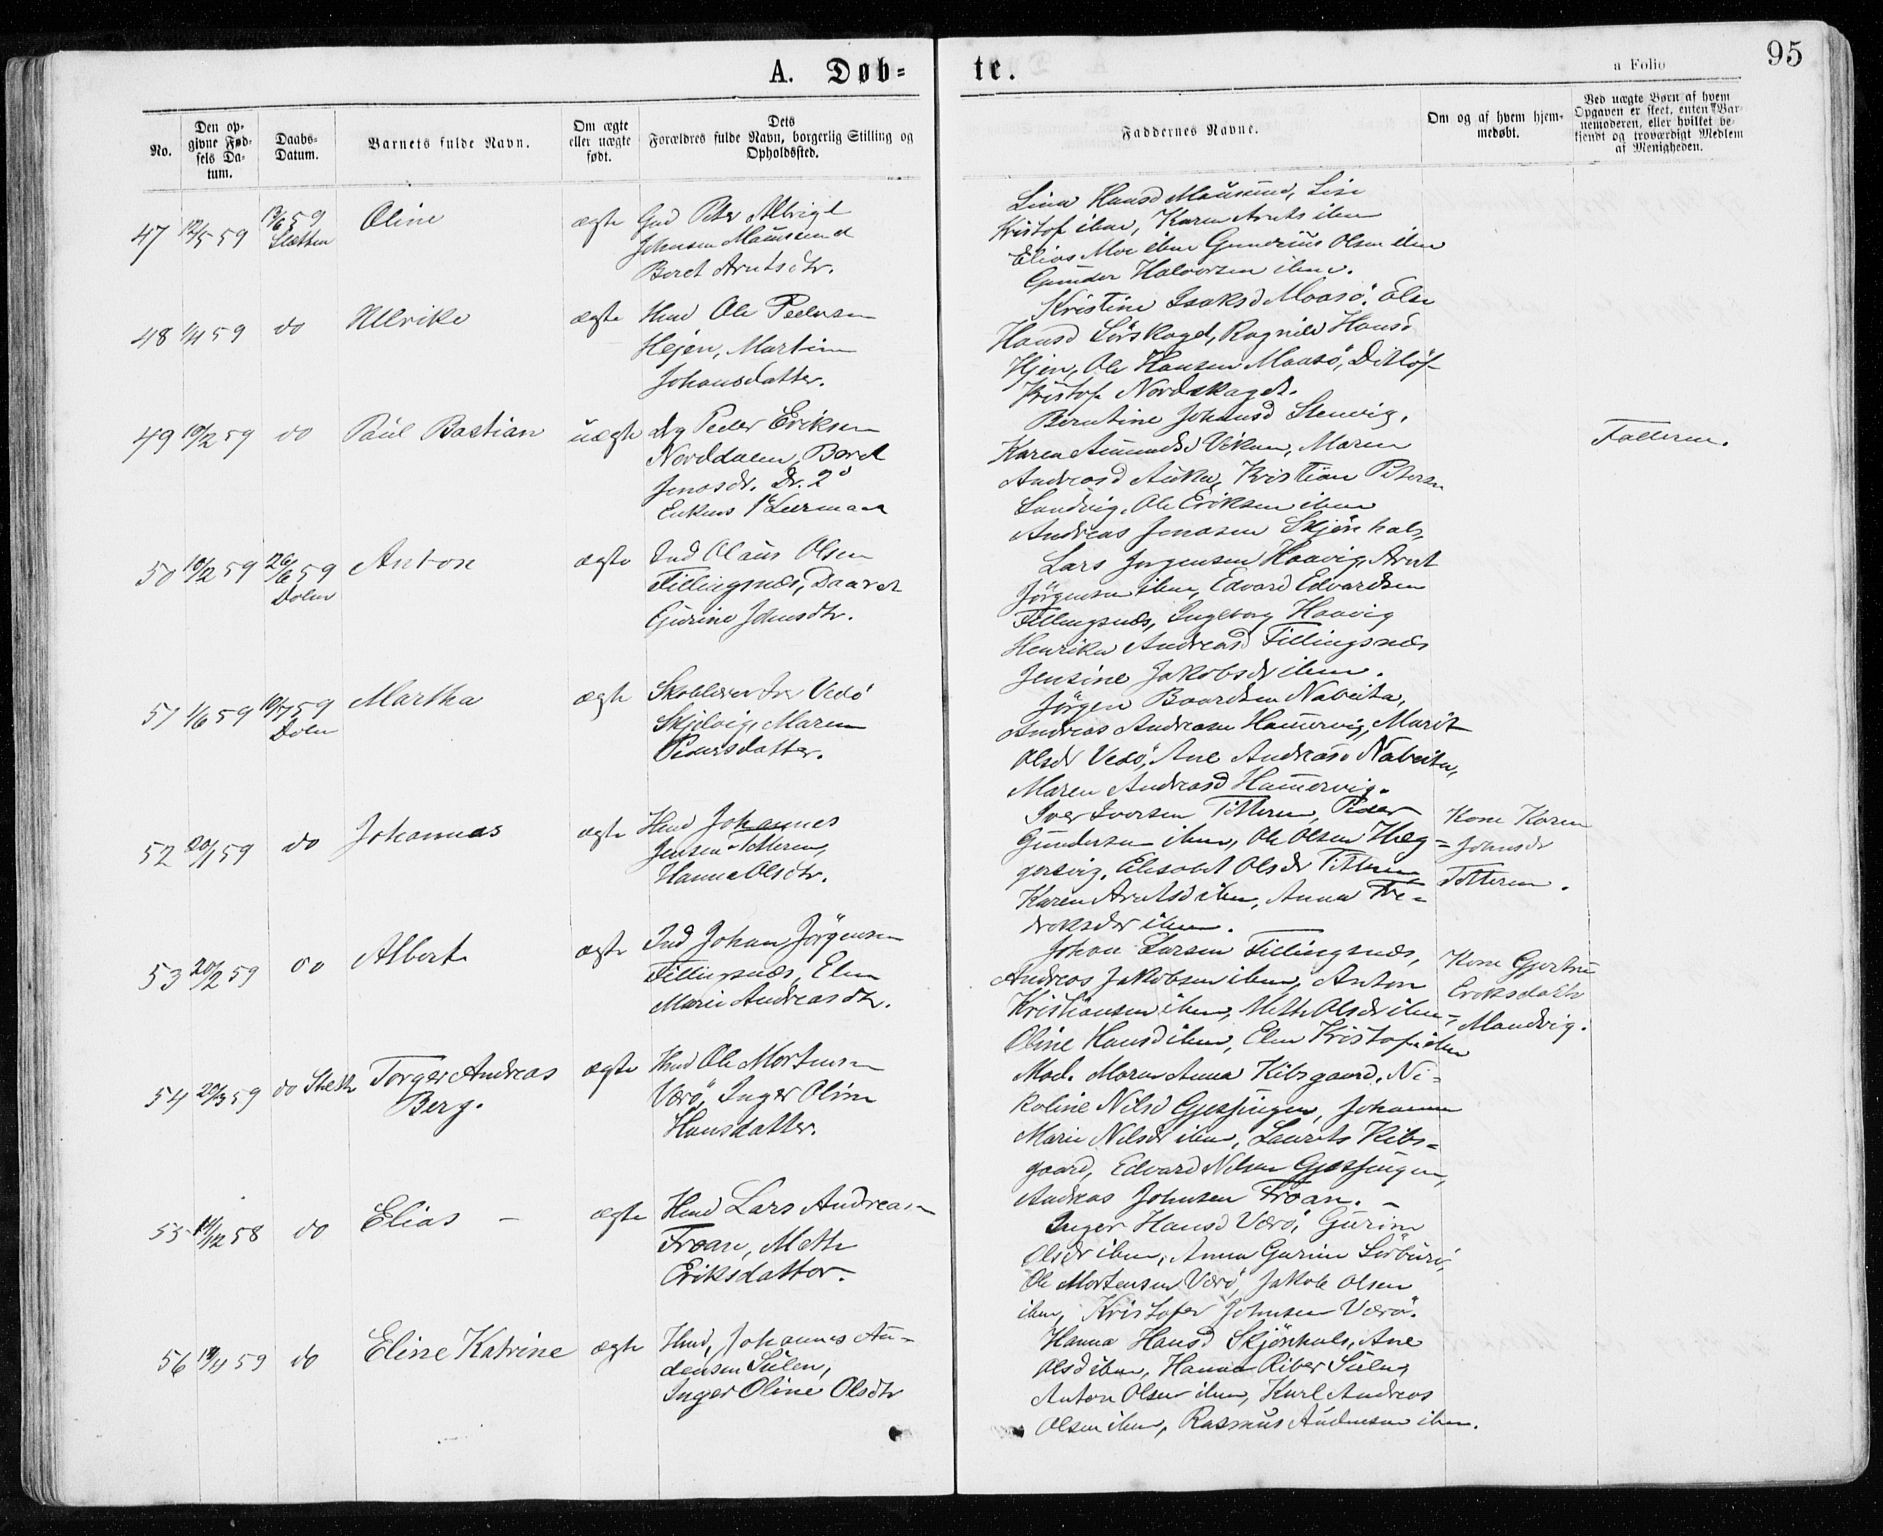 95
A. Døb-
te.
a Folio
No.
Den op-
givne Fød-
sels Da-
tum.
Daabs-
Datum.
Barnets fulde Navn.
Om ægte
eller uægte
født.
Dets
Forældres fulde Navn, borgerlig Stilling og
Opholdssted.
Faddernes Navne.
Om og af hvem hjem-
medøbt.
Ved uægte Børn af hvem
Opgaven er skeet, enten Bar-
nemoderen, eller hvilket be-
kjendt og troværdigt Medlem
af Menigheden.
47 12/5 59
13/6 59
Sletten
Oline
ægte
Gmd Peter Albrigt
Johnsen Mausund
Beret Arntsdtr.
Lina Hansd Mausund, Lise
Kristof ibm, Karen Arnts ibm
Elias Moe ibm Gunerius Olsen ibm
Gunder Halvorsen ibm.
48 1/4 59
do
Ullrike
ægte
Hmd Ole Pedersen
Hejen, Martine
Johansdatter.
Kristine Isaksd Maasø, Else
Hansd Sørskaget, Ragnild Hansd
Hjen, Ole Hansen Maasø, Ditløf
Kristof Nordskaget.
49 19/2 59
do
Paul Bastian
uægte
Ug Peder Eriksen
Norddalen, Beret
Jonasdr.
Berntine Johansd Stenvig,
Karen Amundsd Viken, Maren
Andreasd Auka, Kristian Petersen
Sandvig, Ole Eriksen ibm
Andreas Jonasen Skjønhals
Faderen.
50 10/2 59
26/6 59
Dolm
Anton
ægte
Ind Olaus Olsen
Fillingsnæs,
Gurine Johnsdtr.
Lars Jørgensen Haavig, Arnt
Jørgensen ibm, Edvard Edvardsen
Fillingsnæs, Ingeborg Haavig
Henrikke Andreasd Fillingsnæs
Jensine Jakobsdr ibm.
51 1/6 59
10/7 59
Dolm
Martha
ægte
Skolelærer Iver Vedø
Skjelvig, Maren
Pedersdatter.
Jørgen Baardsen Nabeita,
Andreas Andreasen Hammervig, Marit
Olsdr Vedø, Ane Andreasd Nabeita,
Maren Andreasd Hammervig.
52 20/1 59
do
Johannes
ægte
Hmd Johannes
Jensen Titteren,
Hanna Olsdtr.
Iver Iversen Titteren, Peder
Gundersen ibm, Ole Olsen Hæg-
gersvig, Elisabet Olsdr Titteren
Karen Arntsd ibm, Anna Fre-
driksdr ibm.
Kone Karen
Johnsdr
Titteren.
53 20/2 59
do
Albert
ægte
Ind Johan Jørgensen
Fillingsnæs, Elen
Marie Andreasdtr.
Johan Larsen Fillingsnæs,
Andreas Jakobsen ibm, Anton
Kristiansen ibm, Mette Olsdr ibm,
Oline Hansd ibm, Elen Kristof ibm
Kone Gjertru
Eriksdatter
Mandvig.
54 20/3 59
do Sletten
Torger Andreas
Berg.
ægte
Hmd Ole Mortensen
Værø, Inger Oline
Hansdatter.
Mad. Maren Anna Kibsgaard, Ni-
koline Nilsd Gjessingen, Johanna
Marie Nilsdr ibm, Laurits Kibs-
gaard, Edvard Nilsen Gjessingen,
Andreas Johnsen Froan.
55 14/12 58
do
Elias
ægte
Hmd Lars Andreasen
Froan, Mette
Eriksdatter.
Inger Hansd Værø, Gurine
Olsdr ibm, Anna Gurine Sørburø,
Ole Mortensen Værø, Jakob Olsen
ibm, Kristofer Johnsen Værø.
56 19/4 59
do
Eline Katrine
ægte
Hmd, Johannes Au-
densen Sulen,
Inger Oline Olsdtr
Hanna Hansd Skjønhals, Ane
Olsd ibm, Hanna Riber Sulen,
Anton Olsen ibm, Karl Andreas
Olsen ibm, Rasmus Audensen ibm.